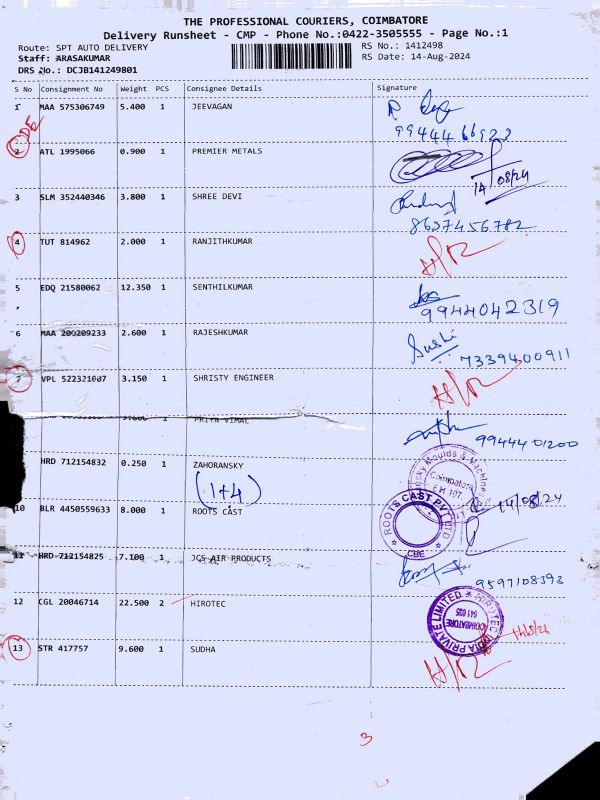 THE PROFESSIONAL COURIERS, COIMBATORE
Delivery Runsheet - CMP - Phone No.:0422-3505555 - Page No.:1
Route: SPT AUTO DELIVERY RS No.: 1412498
Staff: ARASAKUMAR RS Date: 14-Aug-2024
DRS No.: DCJB141249801
S No Consignment No Weight PCS Consignee Details Signature
1 MAA 575306749 5.400 1 JEEVAGAN
99444 66923
CDE
2 ATL 1995066 0.900 1 PREMIER METALS
14/08/24
3 SLM 352440346 3.800 1 SHREE DEVI
8637456782
4 TUT 814962 2.000 1 RANJITHKUMAR
5 EDQ 21580062 12.350 1 SENTHILKUMAR
9944042319
6 MAA 200209233 2.600 1 RAJESHKUMAR
Sushi 7339400911
7 VPL 522321007 3.150 1 SHRISTY ENGINEER
PRIYA VIMAL
9944401200
HRD 712154832 0.250 1 ZAHORANSKY
Moulds & Machines
Coimbatore
(1+4)
10 BLR 4450559633 8.000 1 ROOTS CAST 14/08/24
ROOTS CAST PVT LTD
CBE
11 HRD 712154825 7.100 1 JCS AIR PRODUCTS
9597108392
12 CGL 20046714 22.500 2 HIROTEC
HIROTEC INDIA PRIVATE LIMITED
COIMBATORE
641 035
13 STR 417757 9.600 1 SUDHA
3